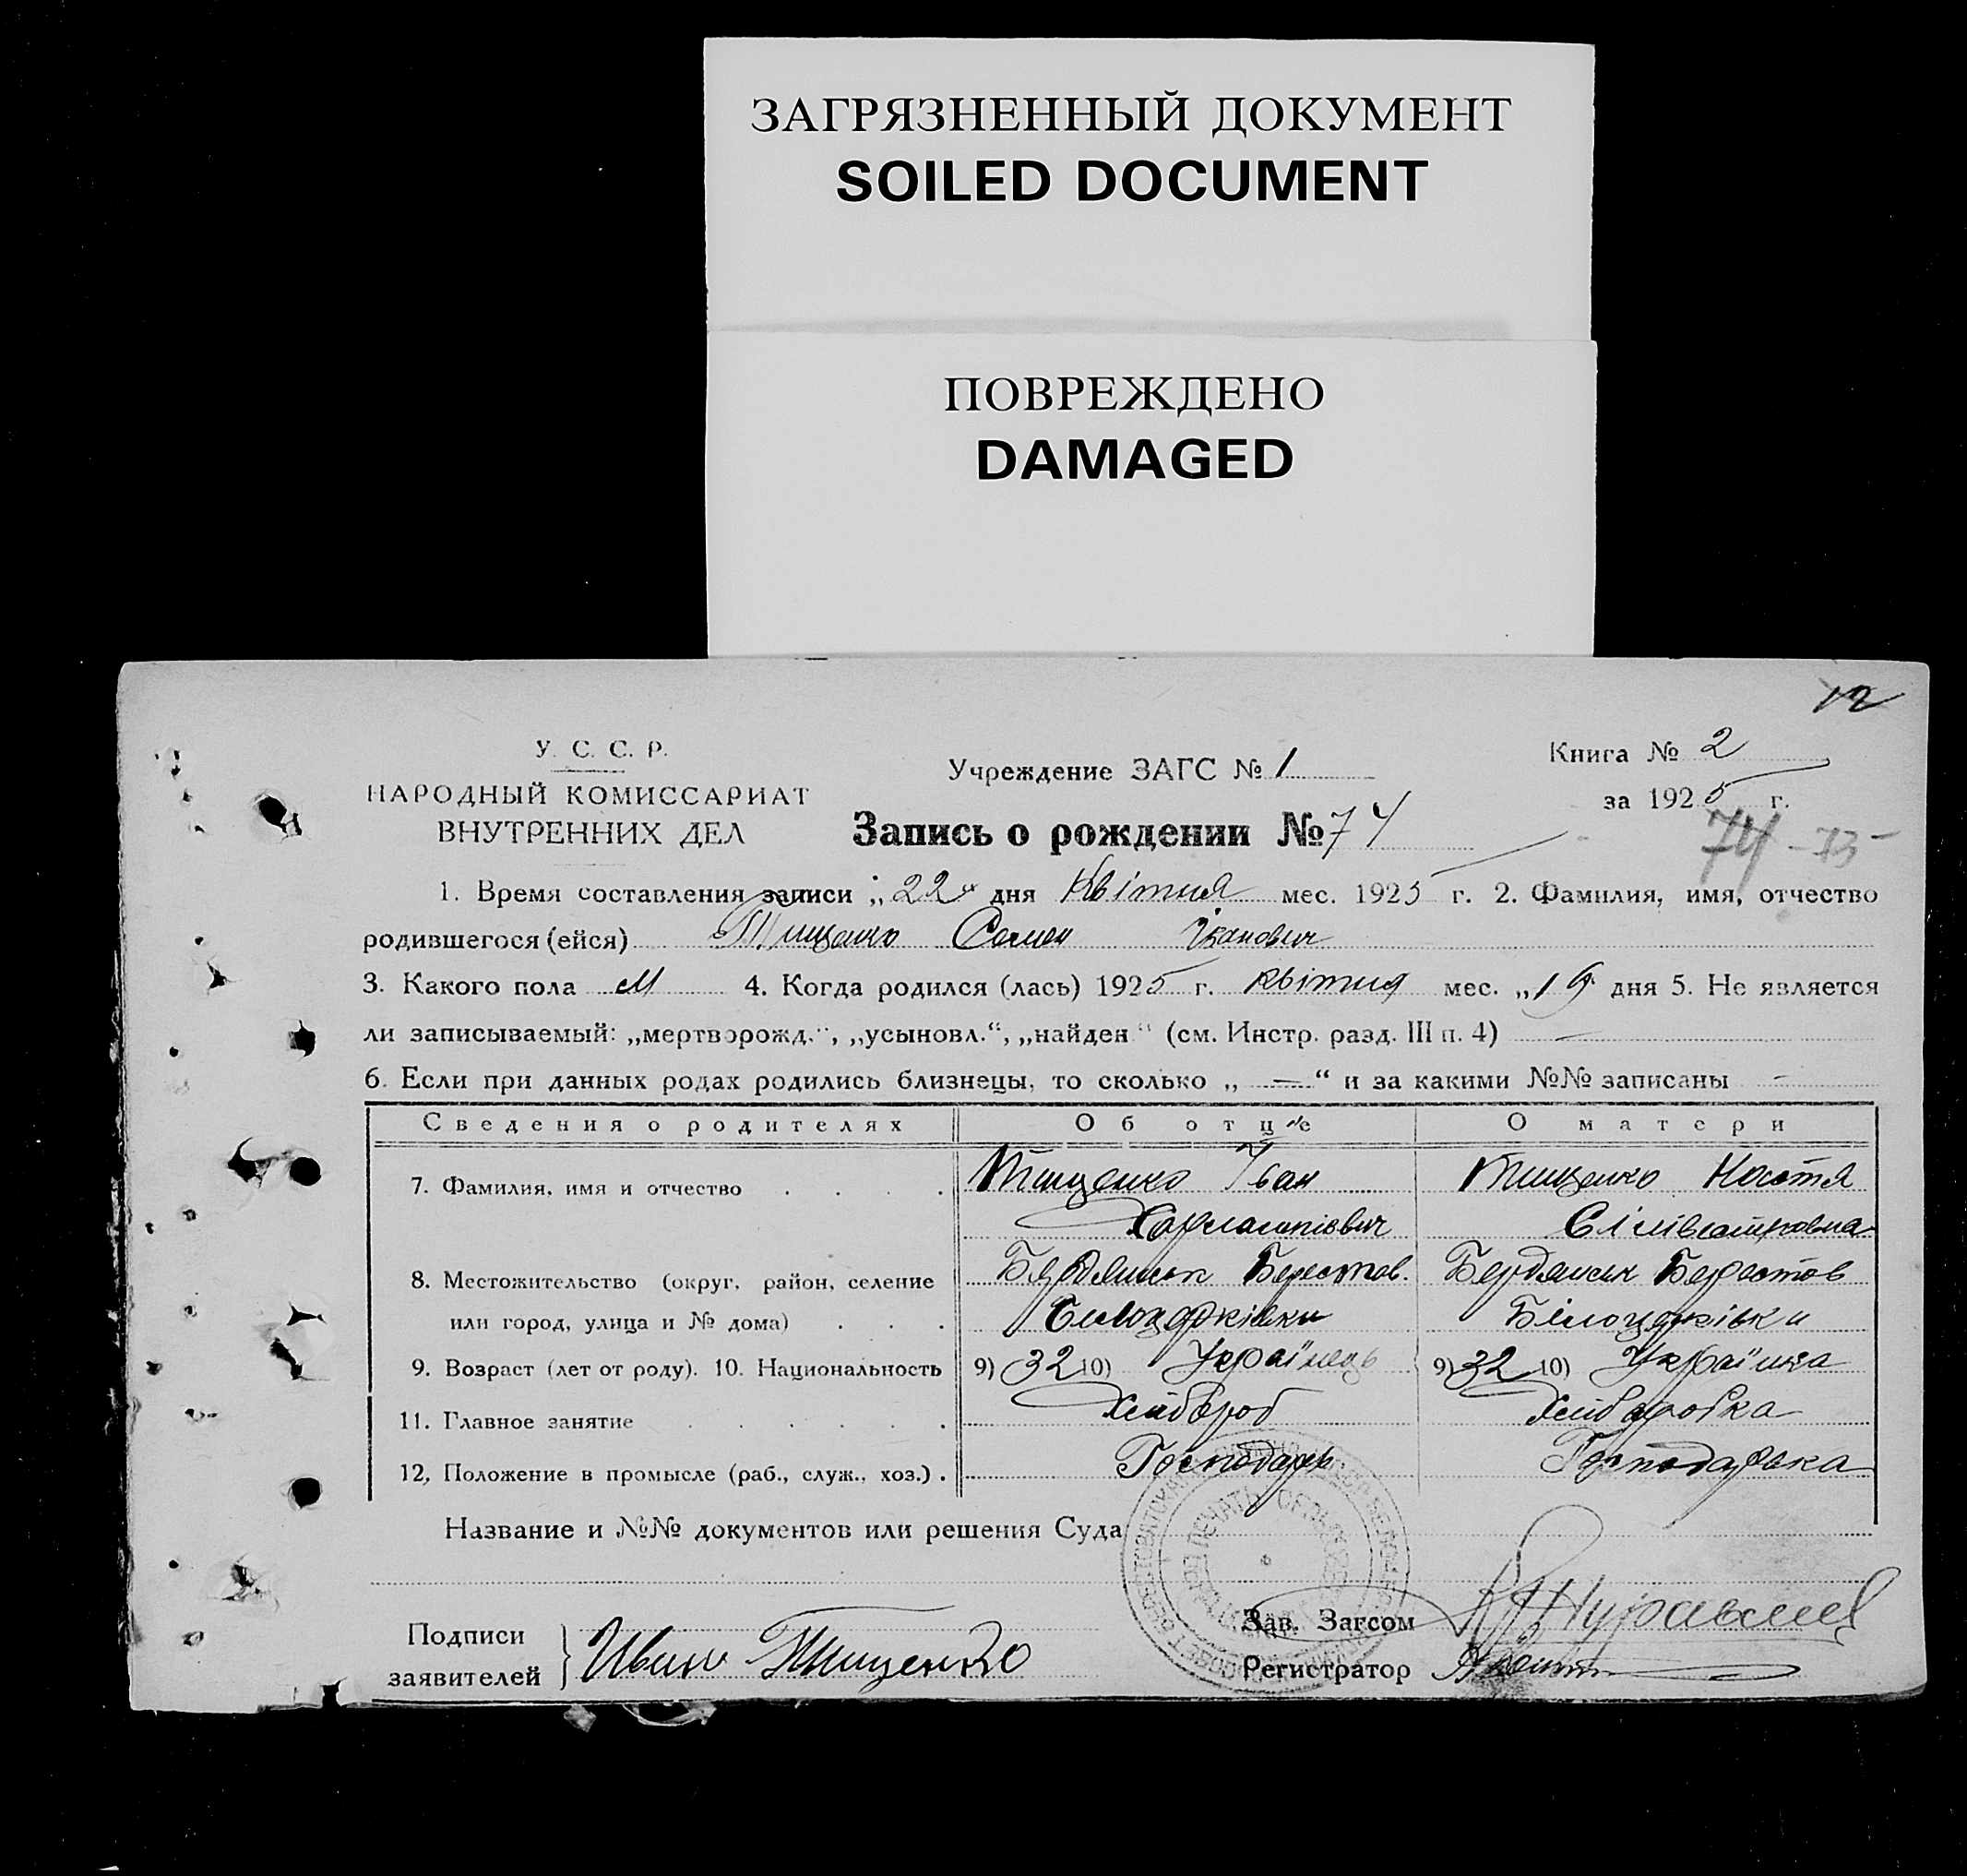 ЗАГРЯЗНЕННЫЙ ДОКУМЕНТ
SOILED DOCUMENT
ПОВРЕЖДЕНО
DAMAGED
12
У. С. С. Р.
НАРОДНЫЙ КОМИССАРИАТ
ВНУТРЕННИХ ДЕЛ
Учреждение ЗАГС № 1
Книга № 2
за 1925 г.
Запись о рождении № 74
74 - 73 -
1. Время составления записи „22“ дня Квітня мес. 1925 г. 2. Фамилия, имя, отчество
родившегося (ейся) Тищенко Семен Іванович
3. Какого пола М 4. Когда родился (лась) 1925 г. квітня мес. „19 дня 5. Не является
ли записываемый: „мертворожд.“, „усыновл.“, „найден“ (см. Инстр. разд. III п. 4) —
6. Если при данных родах родились близнецы, то сколько „ — “ и за какими №№ записаны -
Сведения о родителях Об отце О матери
7. Фамилия, имя и отчество . . . . Тищенко Іван Тищенко
Харлампієвич
8. Местожительство (округ, район, селение Бердянськ Берестов. Бердянськ Берестов
или город, улица и № дома) . . . Білоцерківки Білоцерківки
9. Возраст (лет от роду). 10. Национальность 9) 32 10) Українець 9) 32 10) Українка
11. Главное занятие . . . . . . Хлібороб Хліборобка
12, Положение в промысле (раб., служ., хоз.) . Господарь Господарька
Название и №№ документов или решения Суда
Подписи
заявителей } Иван Тищенко
Зав. Загсом
Регистратор